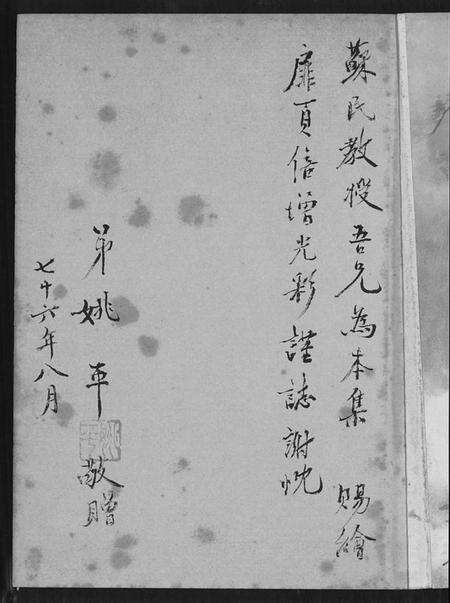 蘇民教授吾兄為本集 賜繪
扉頁倍增光彩謹誌謝忱
弟姚車 敬贈
七十六年八月